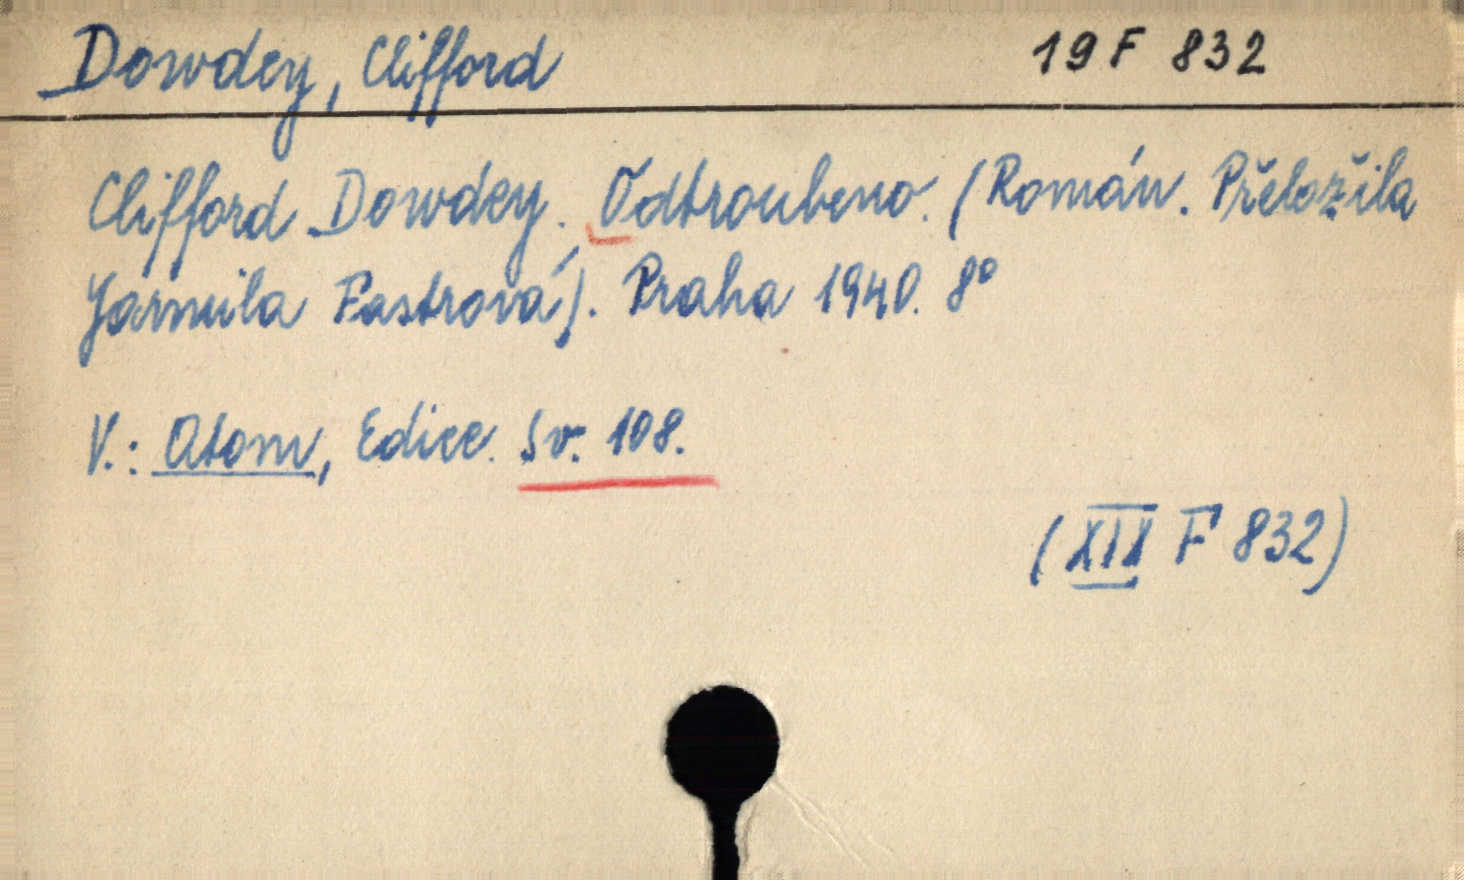 Dowdey, Clifford
19 F 832
Clifford Dowdey. Odtroubeno. (Román. Přeložila
Jarmila Fastrová). Praha 1940. 8°
V.: Atom, Edice. Sv. 108.
(XIX F 832)